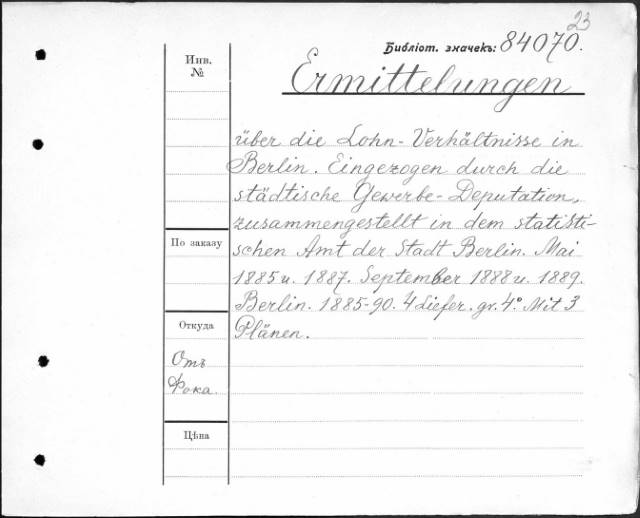 23
Библіот. значекъ: 84070.
Инв.
№
Ermittelungen
über die Lohn-Verhältnisse in
Berlin. Eingezogen durch die
städtische Gewerbe-Deputation,
zusammengestellt in dem statisti-
По заказу
schen Amt der Stadt Berlin. Mai
1885 u. 1887. September 1888 u. 1889.
Berlin. 1885-90. 4 Liefer. gr. 4° Mit 3
Откуда
Plänen.
Отъ
Фока.
Цѣна